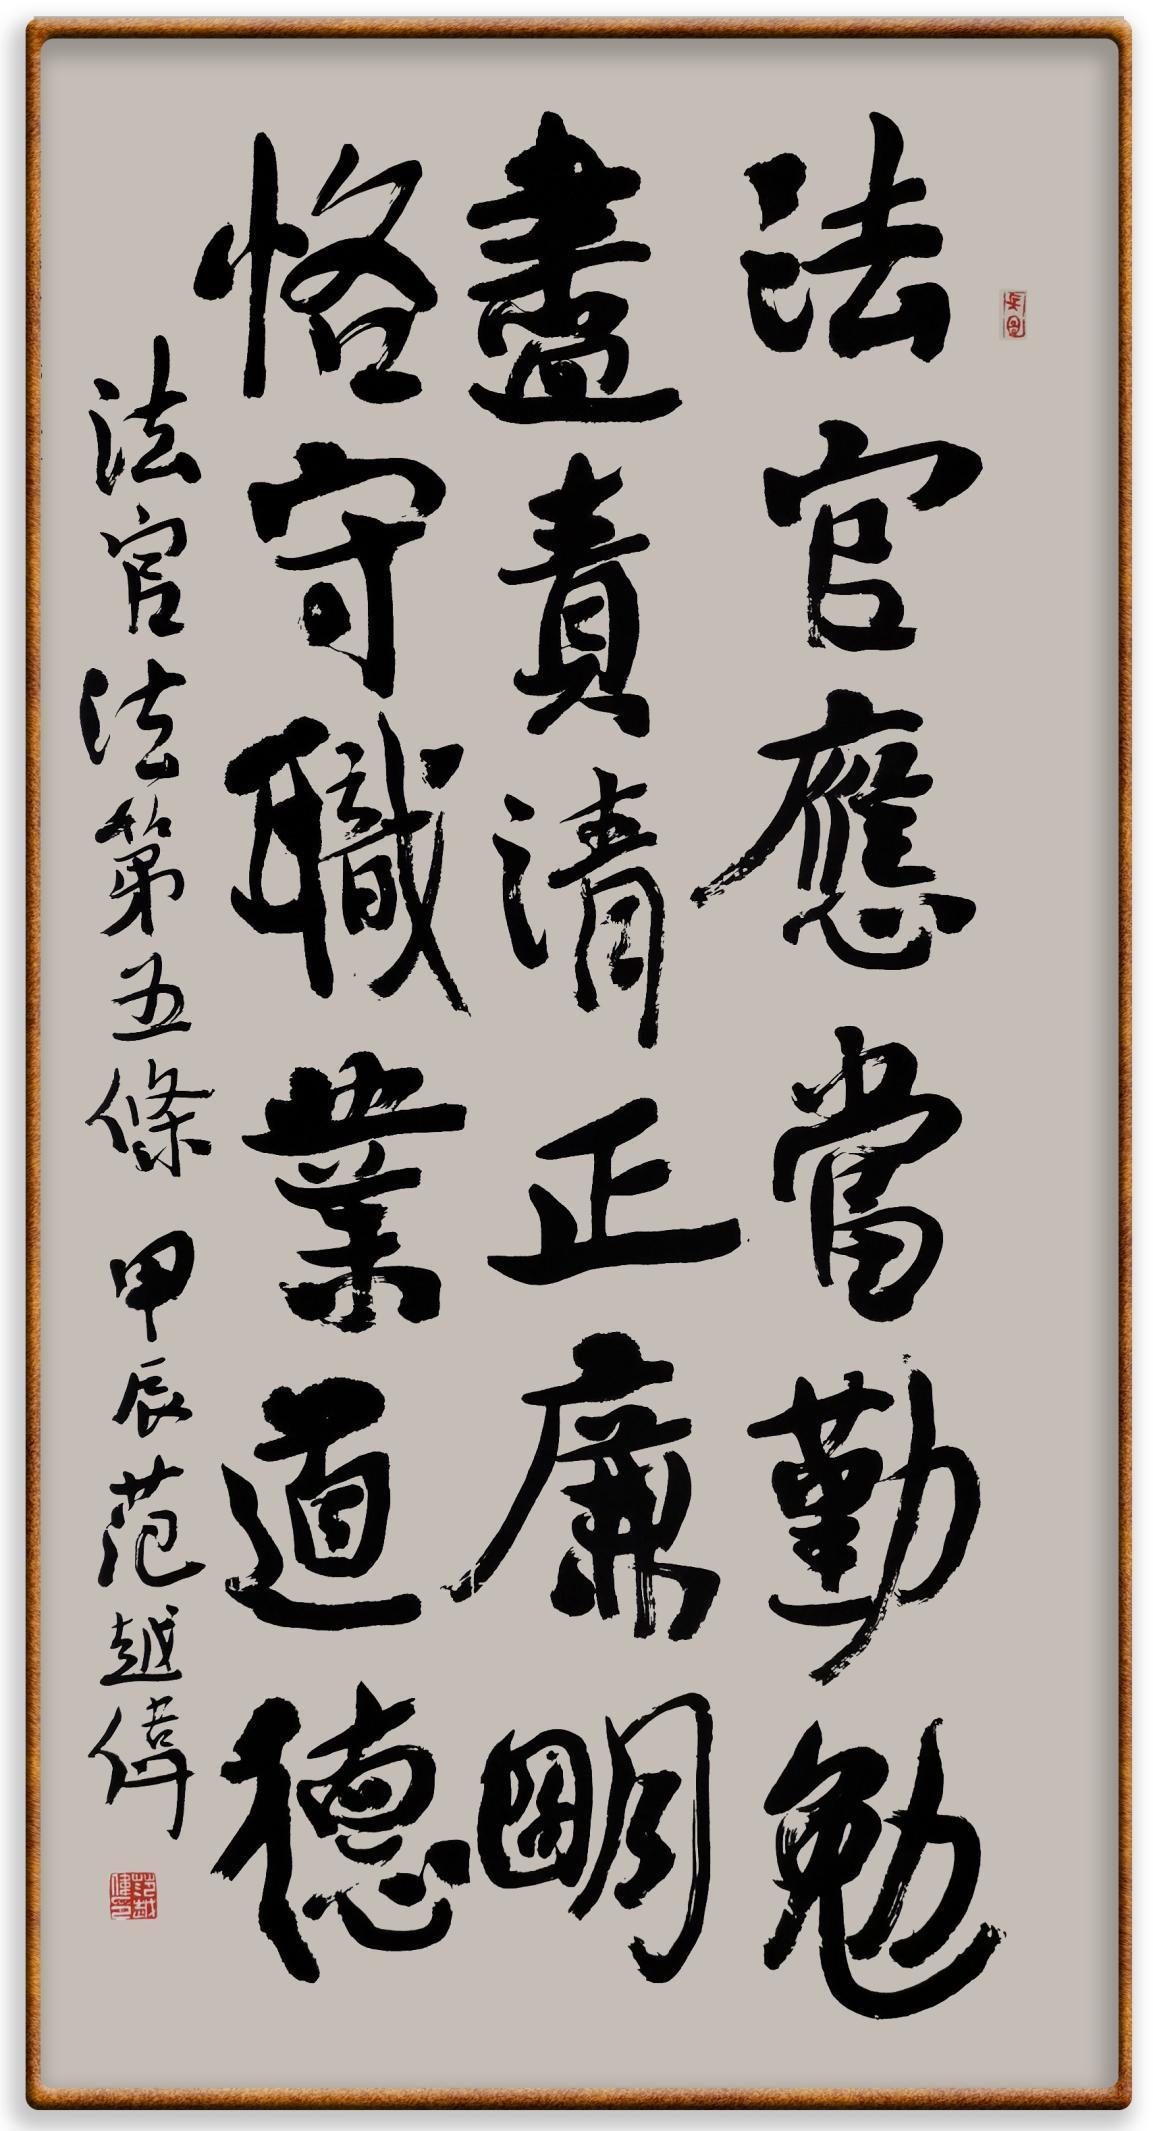 法官應當勤勉
盡責清正廉明
恪守職業道德
法官法第五條 甲辰范越偉
范越偉印